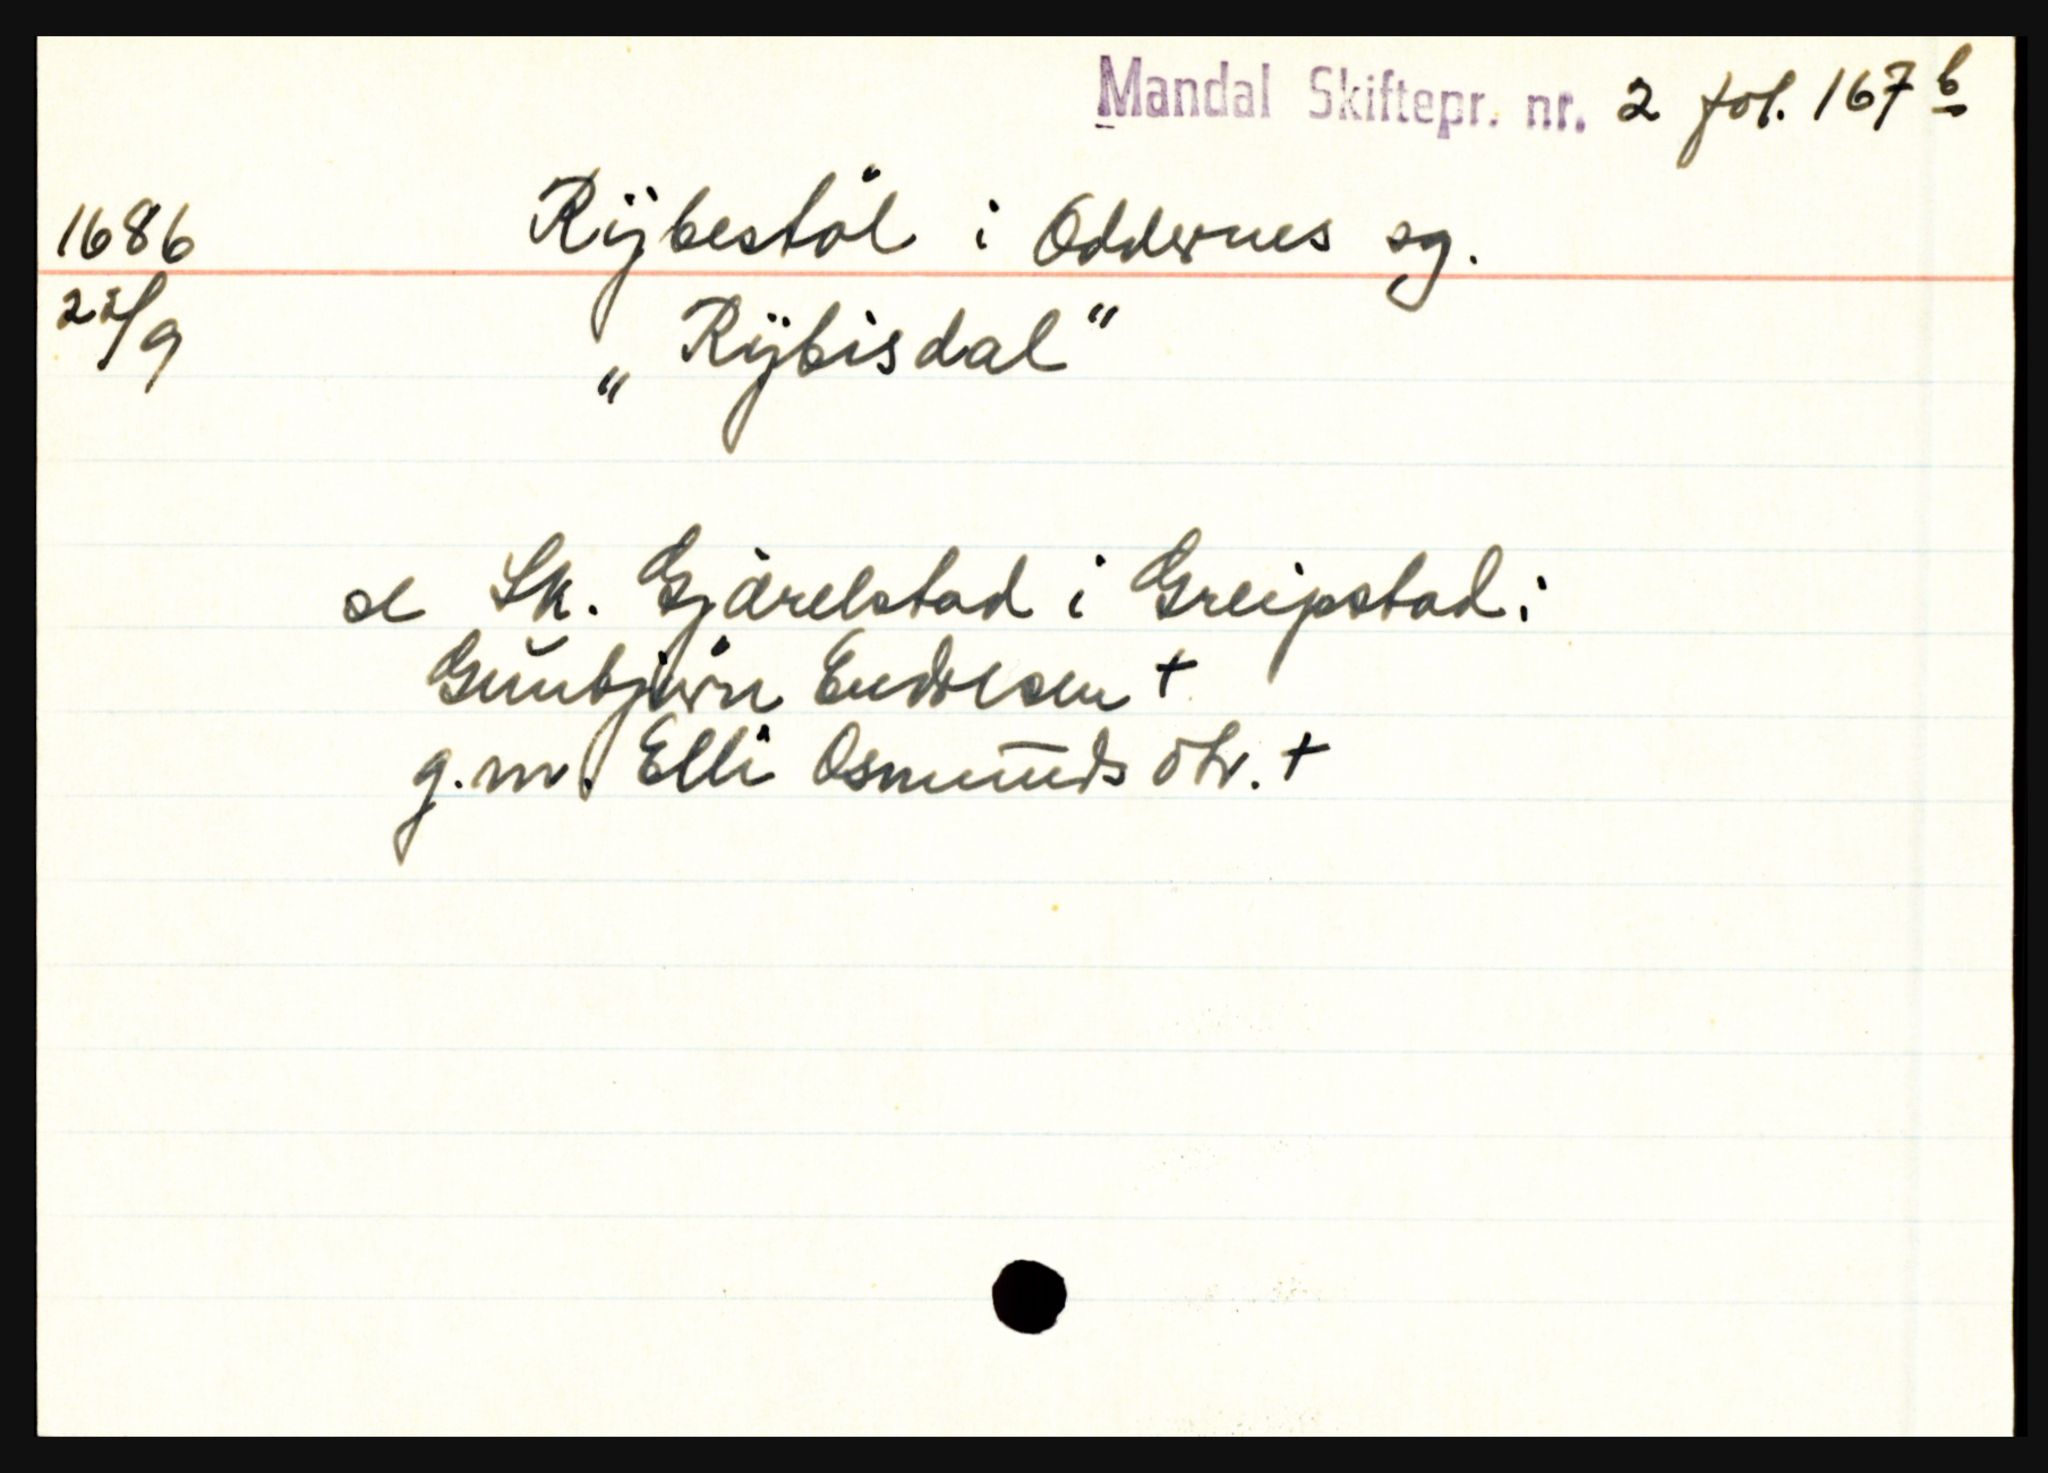 Mandal Skiftepr. nr. 2 fol. 167 b
1686 Rÿbestöl i Oddernes sg.
22/9 „Rÿbisdal"
se Sk. Gjärelstad i Greipstad:
Gunbjörn Endresen +
g. m. Elli Osmunds dtr. +